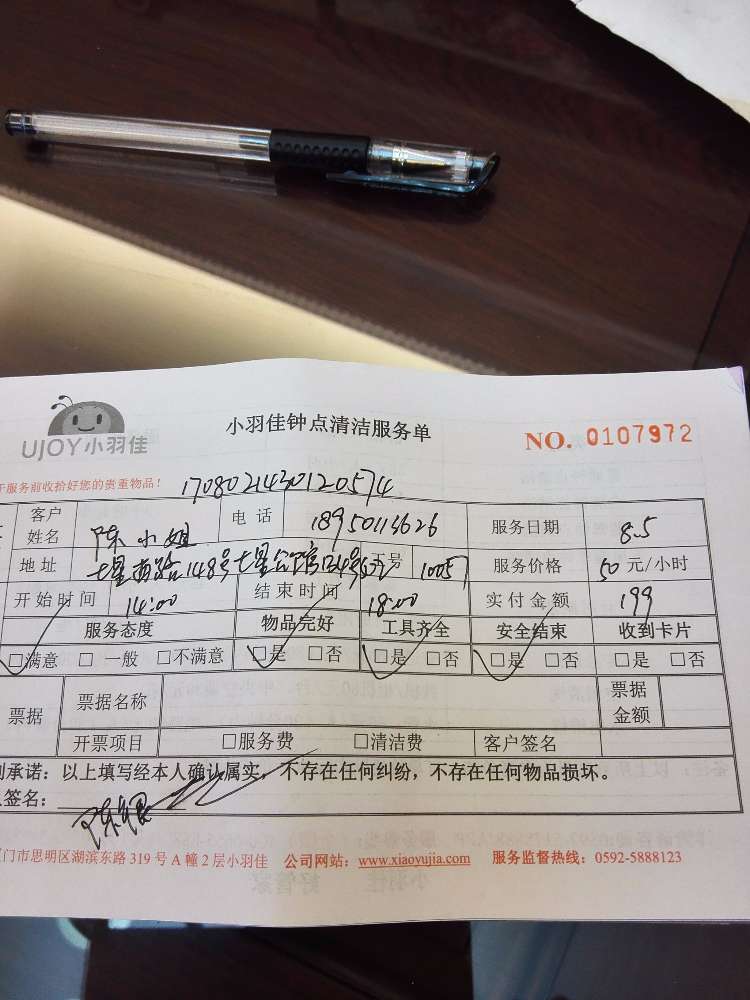 UJOY小羽佳
小羽佳钟点清洁服务单
NO. 0107972
于服务前收拾好您的贵重物品!
1708021430120574
客户姓名 陈小姐 电话 18950113626 服务日期 8.5
地址 七星西路148号七星公馆 工号 1005 服务价格 50元/小时
开始时间 14:00 结束时间 18:00 实付金额 199
服务态度 物品完好 工具齐全 安全结束 收到卡片
□满意 □一般 □不满意 □是 □否 □是 □否 □是 □否 □是 □否
票据 票据名称 票据金额
开票项目 □服务费 □清洁费 客户签名
承诺:以上填写经本人确认属实,不存在任何纠纷,不存在任何物品损坏。
签名:
门市思明区湖滨东路319号A幢2层小羽佳 公司网站:www.xiaoyujia.com 服务监督热线:0592-5888123